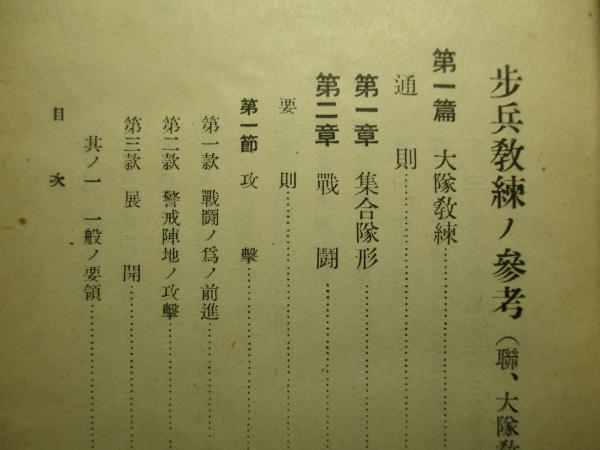 步兵教練ノ參考(聯、大隊教
第一篇 大隊教練
通則
第一章 集合隊形
第二章 戰鬪
要則
第一節 攻擊
第一款 戰鬪ノ爲ノ前進
第二款 警戒陣地ノ攻擊
第三款 展開
其ノ一 一般ノ要領
目次